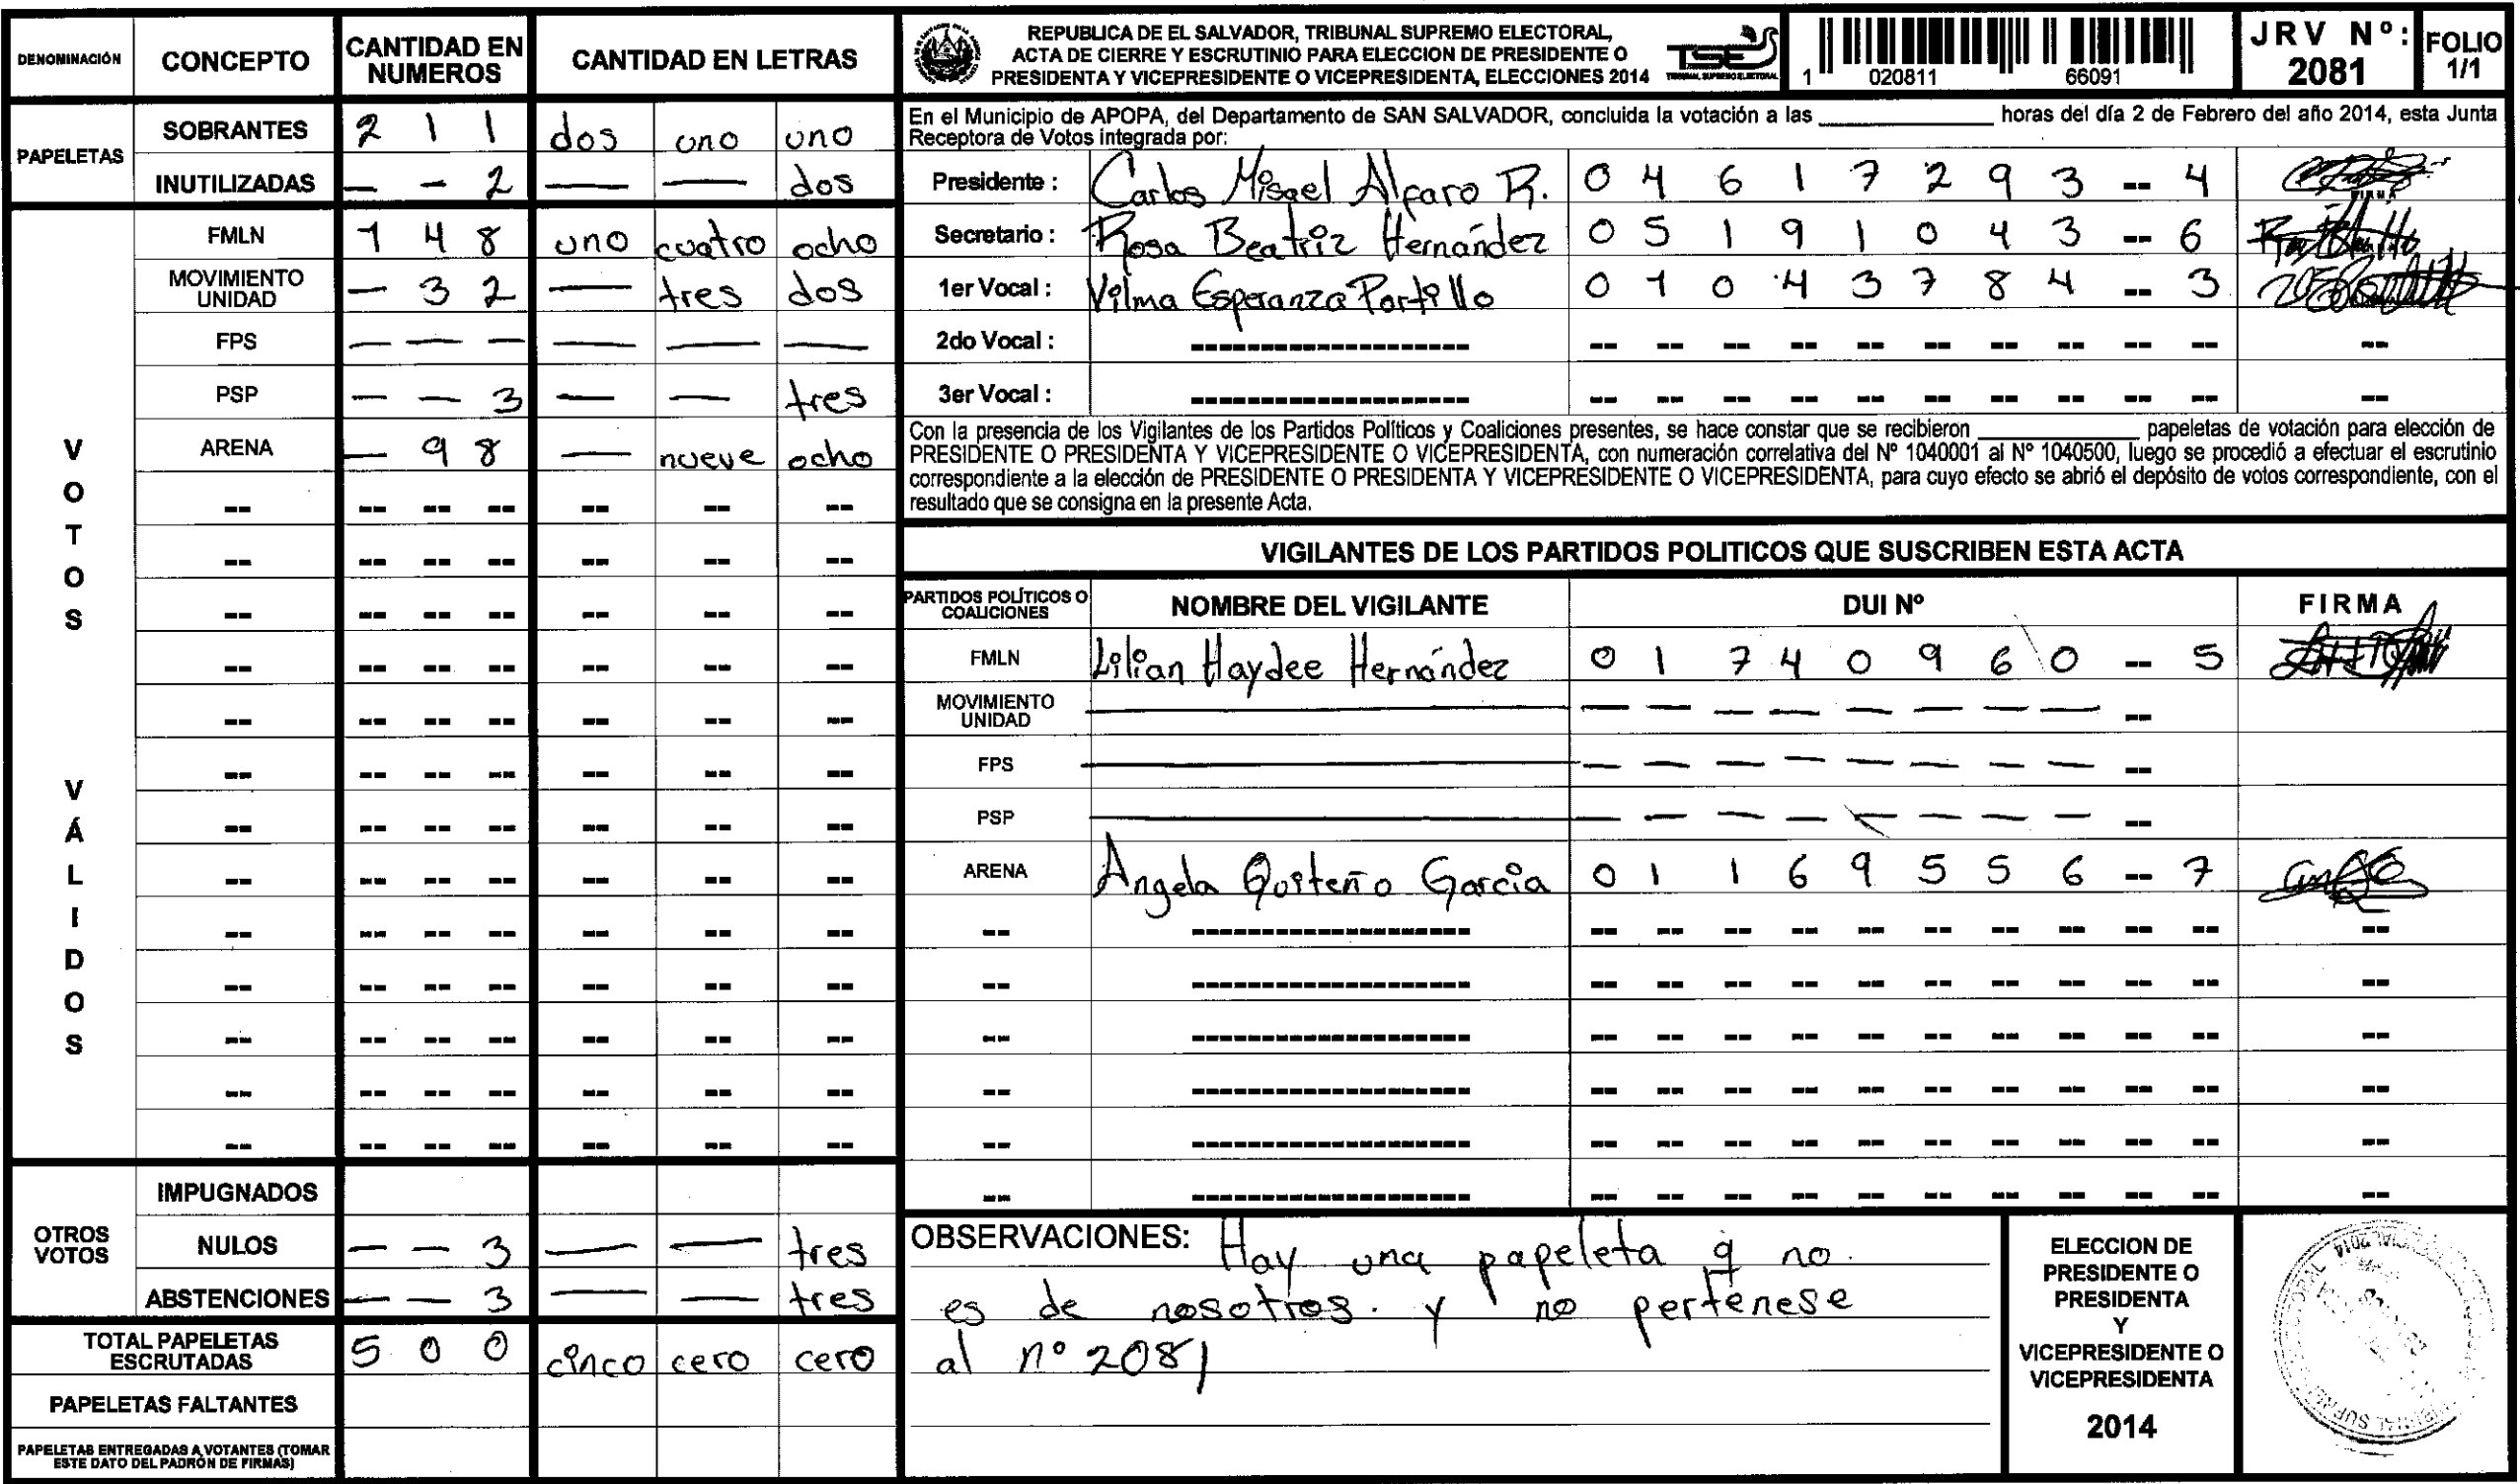 DENOMINACIÓN CONCEPTO CANTIDAD EN NUMEROS CANTIDAD EN LETRAS
PAPELETAS
SOBRANTES 2 1 1 dos uno uno
INUTILIZADAS — — 2 — — dos
VOTOS VÁLIDOS
FMLN 1 4 8 uno cuatro ocho
MOVIMIENTO UNIDAD — 3 2 — tres dos
FPS — — — — — —
PSP — — 3 — — tres
ARENA — 9 8 — nueve ocho
-- -- -- -- -- -- --
-- -- -- -- -- -- --
-- -- -- -- -- -- --
-- -- -- -- -- -- --
-- -- -- -- -- -- --
-- -- -- -- -- -- --
-- -- -- -- -- -- --
-- -- -- -- -- -- --
-- -- -- -- -- -- --
-- -- -- -- -- -- --
-- -- -- -- -- -- --
-- -- -- -- -- -- --
-- -- -- -- -- -- --
OTROS VOTOS
IMPUGNADOS
NULOS — — 3 — — tres
ABSTENCIONES — — 3 — — tres
TOTAL PAPELETAS ESCRUTADAS 5 0 0 cinco cero cero
PAPELETAS FALTANTES
PAPELETAS ENTREGADAS A VOTANTES (TOMAR
ESTE DATO DEL PADRÓN DE FIRMAS)
REPUBLICA DE EL SALVADOR, TRIBUNAL SUPREMO ELECTORAL,
ACTA DE CIERRE Y ESCRUTINIO PARA ELECCION DE PRESIDENTE O
PRESIDENTA Y VICEPRESIDENTE O VICEPRESIDENTA, ELECCIONES 2014
TSE
TRIBUNAL SUPREMO ELECTORAL
1 020811 66091
JRV Nº: 2081
FOLIO 1/1
En el Municipio de APOPA, del Departamento de SAN SALVADOR, concluida la votación a las ____________ horas del día 2 de Febrero del año 2014, esta Junta
Receptora de Votos integrada por:
Presidente : Carlos Misael Alfaro R. 0 4 6 1 7 2 9 3 -- 4
FIRMA
Secretario : Rosa Beatriz Hernández 0 5 1 9 1 0 4 3 -- 6
1er Vocal : Vilma Esperanza Portillo 0 1 0 4 3 7 8 4 -- 3
2do Vocal : -------------------- -- -- -- -- -- -- -- -- -- -- --
3er Vocal : -------------------- -- -- -- -- -- -- -- -- -- -- --
Con la presencia de los Vigilantes de los Partidos Políticos y Coaliciones presentes, se hace constar que se recibieron ____________ papeletas de votación para elección de
PRESIDENTE O PRESIDENTA Y VICEPRESIDENTE O VICEPRESIDENTA, con numeración correlativa del Nº 1040001 al Nº 1040500, luego se procedió a efectuar el escrutinio
correspondiente a la elección de PRESIDENTE O PRESIDENTA Y VICEPRESIDENTE O VICEPRESIDENTA, para cuyo efecto se abrió el depósito de votos correspondiente, con el
resultado que se consigna en la presente Acta.
VIGILANTES DE LOS PARTIDOS POLITICOS QUE SUSCRIBEN ESTA ACTA
PARTIDOS POLÍTICOS O COALICIONES NOMBRE DEL VIGILANTE DUI Nº FIRMA
FMLN Lilian Haydee Hernández 0 1 7 4 0 9 6 0 -- 5
MOVIMIENTO UNIDAD — — — — — — — — — --
FPS — — — — — — — — — --
PSP — — — — — — — — — --
ARENA Angela Qusteño Garcia 0 1 1 6 9 5 5 6 -- 7
-- -------------------- -- -- -- -- -- -- -- -- -- -- --
-- -------------------- -- -- -- -- -- -- -- -- -- -- --
-- -------------------- -- -- -- -- -- -- -- -- -- -- --
-- -------------------- -- -- -- -- -- -- -- -- -- -- --
-- -------------------- -- -- -- -- -- -- -- -- -- -- --
-- -------------------- -- -- -- -- -- -- -- -- -- -- --
OBSERVACIONES: Hay una papeleta q no
es de nosotros. y no pertenese
al nº 2081
ELECCION DE
PRESIDENTE O
PRESIDENTA
Y
VICEPRESIDENTE O
VICEPRESIDENTA
2014